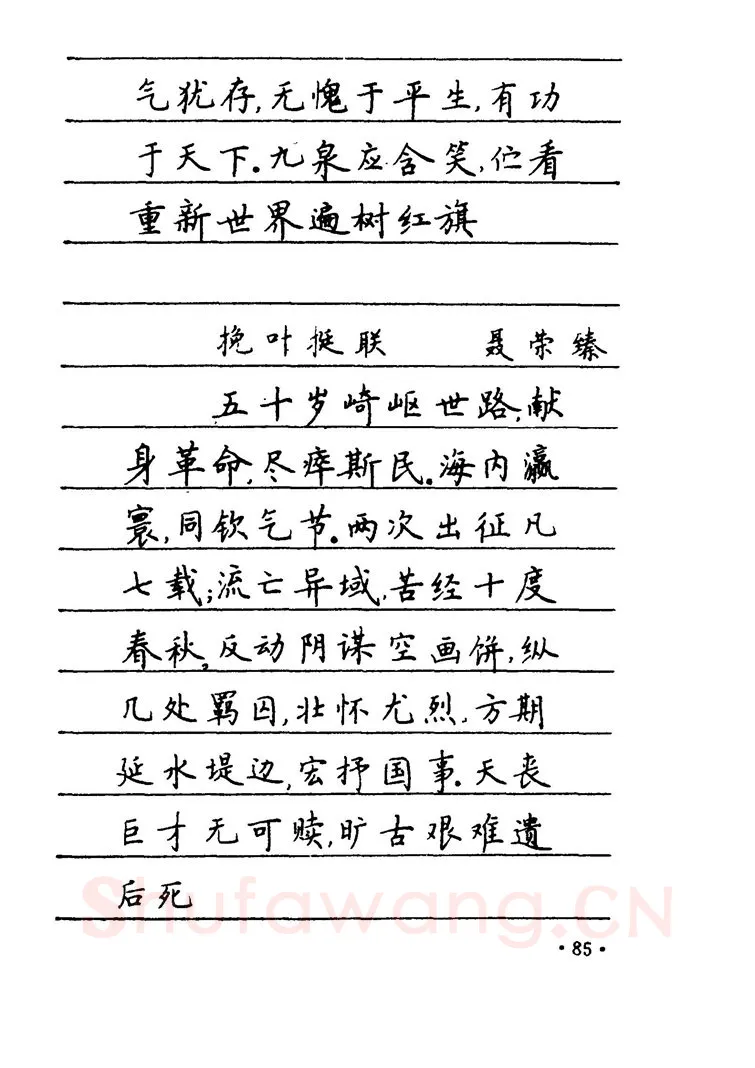 气犹存,无愧于平生,有功
于天下.九泉应含笑,伫看
重新世界遍树红旗
挽叶挺联 聂荣臻
五十岁崎岖世路,献
身革命,尽瘁斯民.海内瀛
寰,同钦气节.两次出征凡
七载;流亡异域,苦经十度
春秋,反动阴谋空画饼,纵
几处羁囚,壮怀尤烈.方期
延水堤边,宏抒国事.天丧
巨才无可赎,旷古艰难遗
后死
Shufawang.CN
·85·